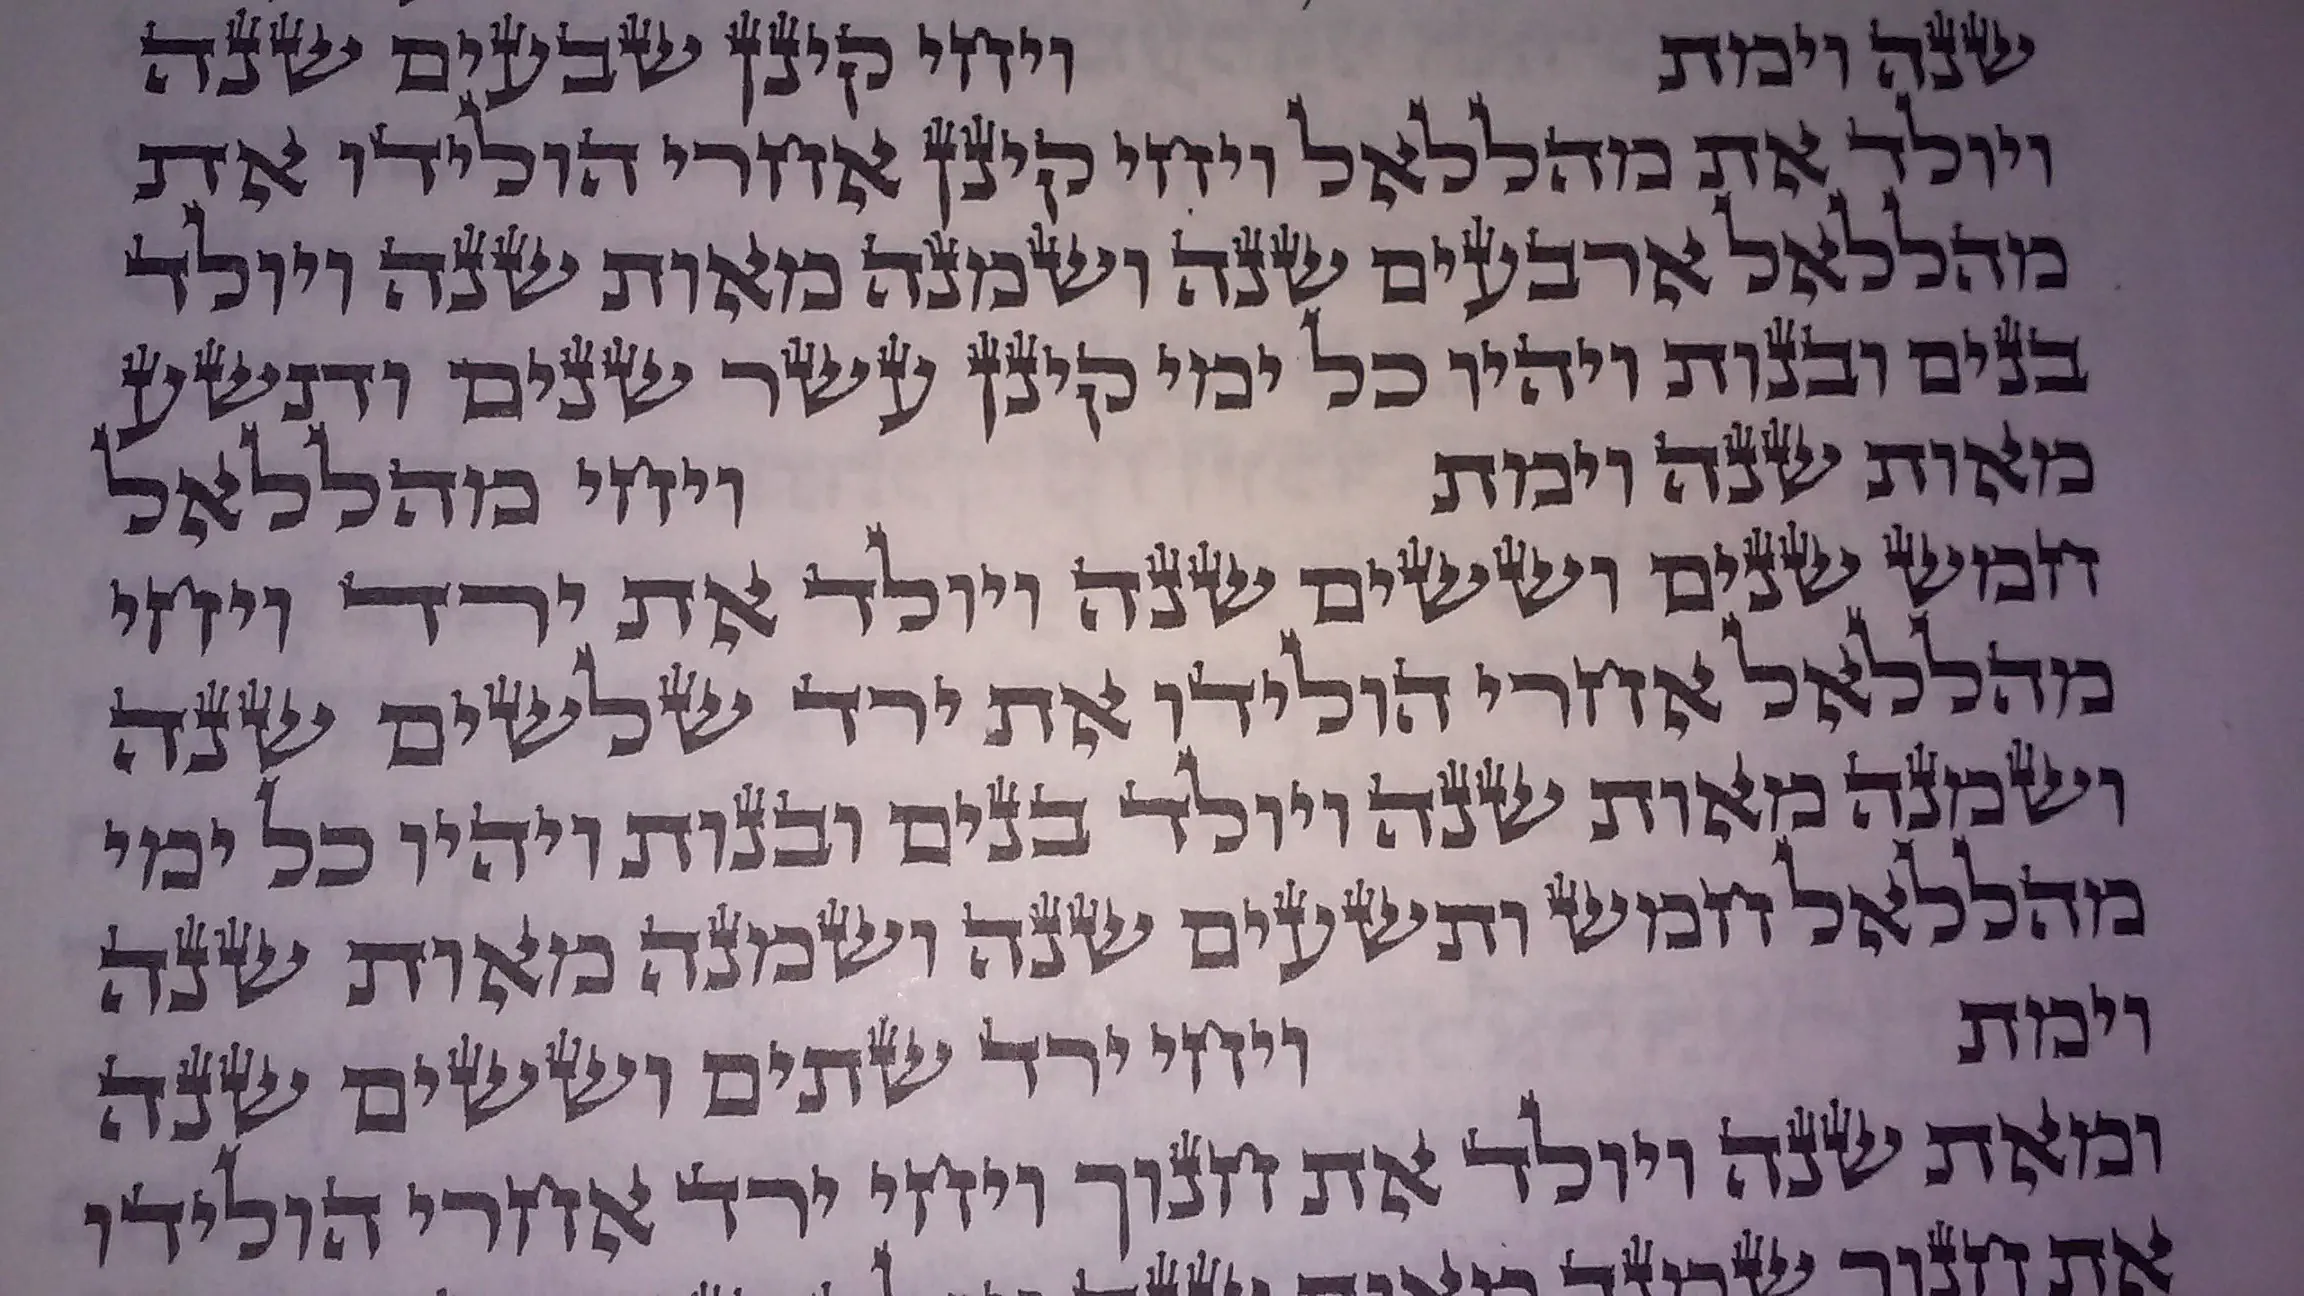 שנה וימת ויחי קינן שבעים שנה
ויולד את מהללאל ויחי קינן אחרי הולידו את
מהללאל ארבעים שנה ושמנה מאות שנה ויולד
בנים ובנות ויהיו כל ימי קינן עשר שנים ותשע
מאות שנה וימת ויחי מהללאל
חמש שנים וששים שנה ויולד את ירד ויחי
מהללאל אחרי הולידו את ירד שלשים שנה
ושמנה מאות שנה ויולד בנים ובנות ויהיו כל ימי
מהללאל חמש ותשעים שנה ושמנה מאות שנה
וימת ויחי ירד שתים וששים שנה
ומאת שנה ויולד את חנוך ויחי ירד אחרי הולידו
את חנוך שמנה מאות שנה